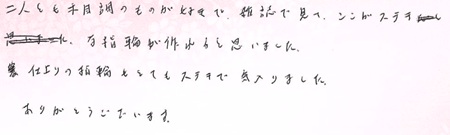 二人とも木目調のものが好きで、雑誌で見て、ここがステキ
な指輪が作れると思いました。
仕上りの指輪もとてもステキで気入りました。
ありがとうございます。